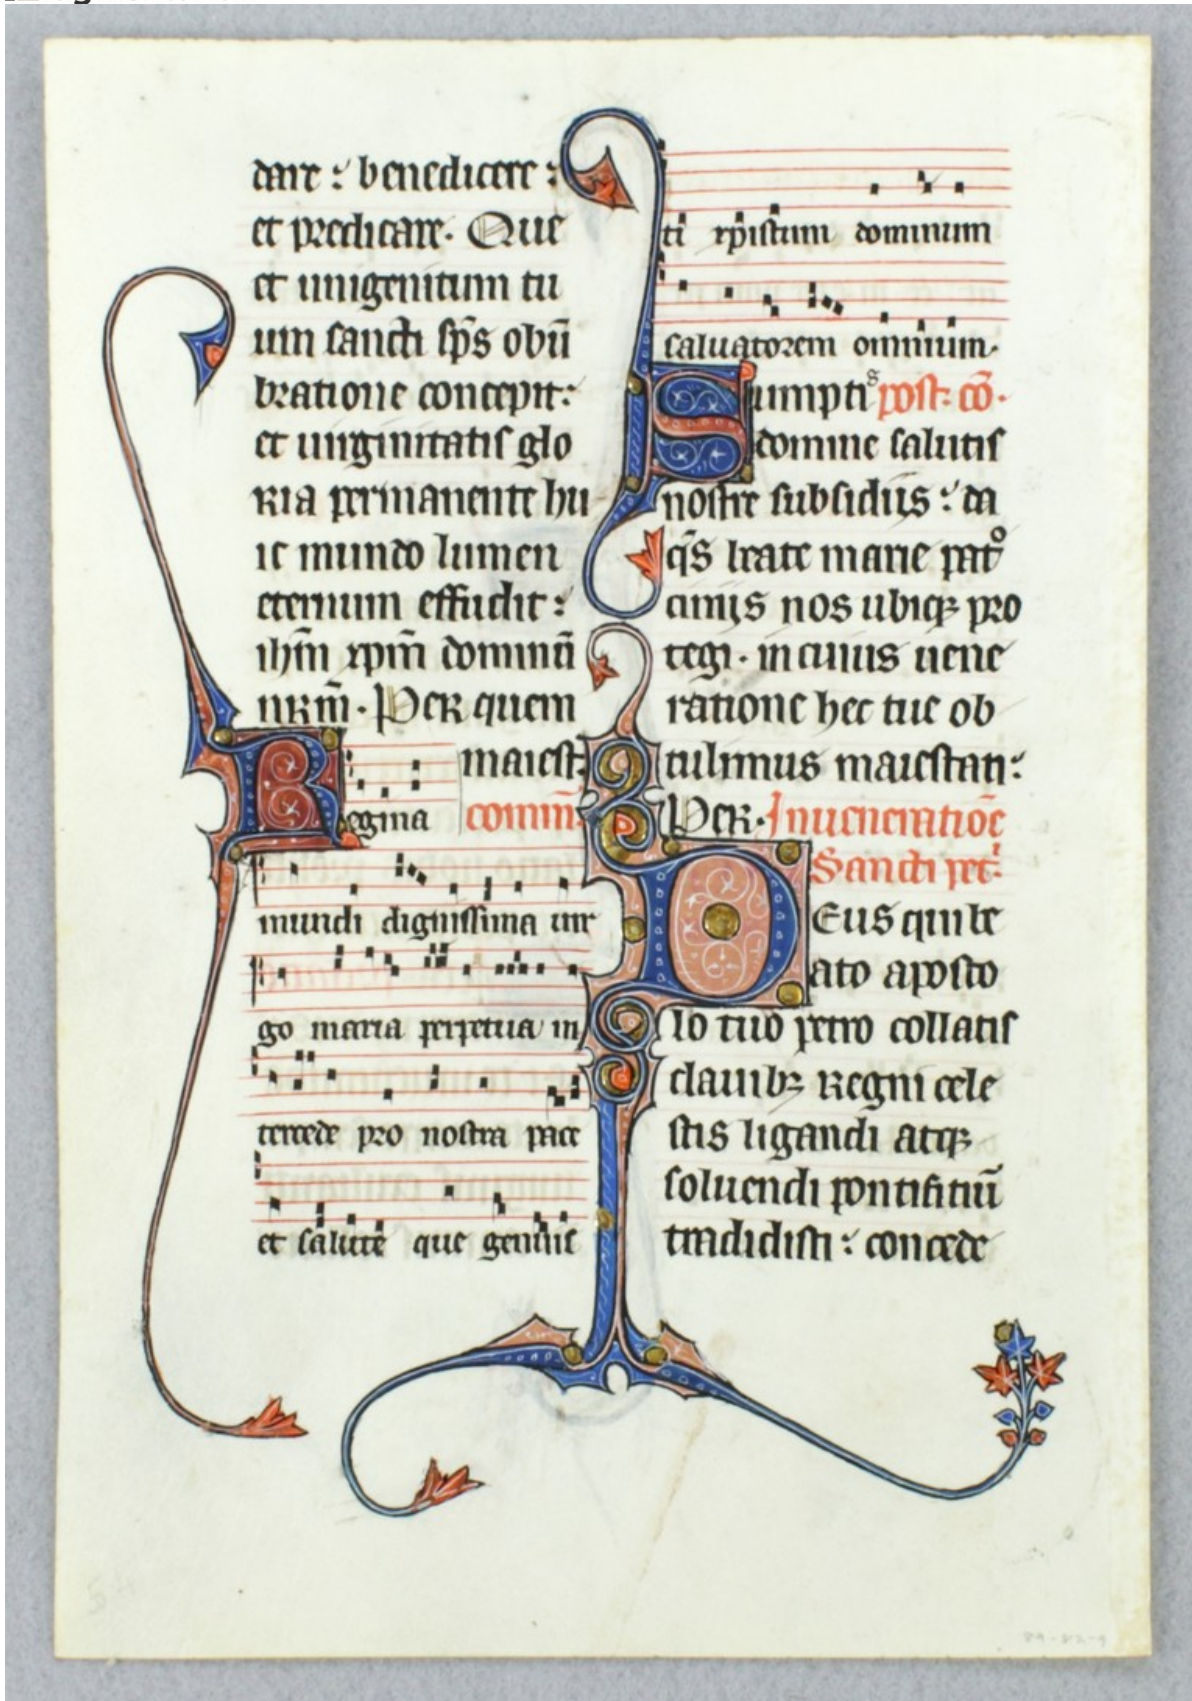 dare : benedicere :
et predicare. Que
et unigenitum tu
um sancti sp̄s obū
bratione concepit :
et uirginitatis glo
ria permanente hu
ic mundo lumen
eternum effudit :
ihm̄ xpm̄ dominū
nrm̄. Per quem
maiest.
Regina comm̄.
mundi dignissima uir
go maria perpetua in
tercede pro nostra pace
et salute que genuis
ti xpistum dominum
saluatorem omnium.
Sumptis post. cō.
domine salutis
nostre subsidiis : da
q̄s beate marie patro
ciniis nos ubiqꝫ pro
tegi. in cuius uene
ratione hec tue ob
tulimus maiestati :
Per. In ueneratiōe
Sancti pet.
DEus qui be
ato aposto
lo tuo petro collatis
clauibꝫ regni cele
stis ligandi atqꝫ
soluendi pontifitiū
tradidisti : concede